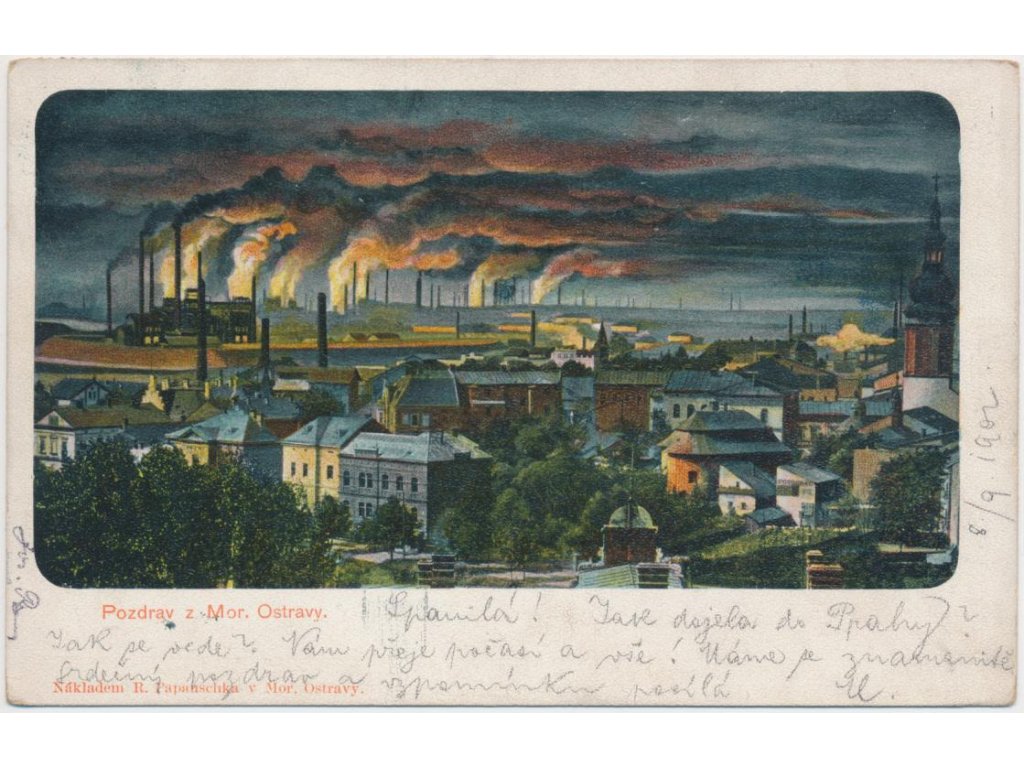 Pozdrav z Mor. Ostravy.
Spanilá! Jak dojela do Prahy?
Jak se vede? Vám přeje počasí a vše! Máme se znamenitě
Srdečný pozdrav a vzpomínku posílá M.
Nákladem R. Papauschka v Mor. Ostravy.
8/9 1902.